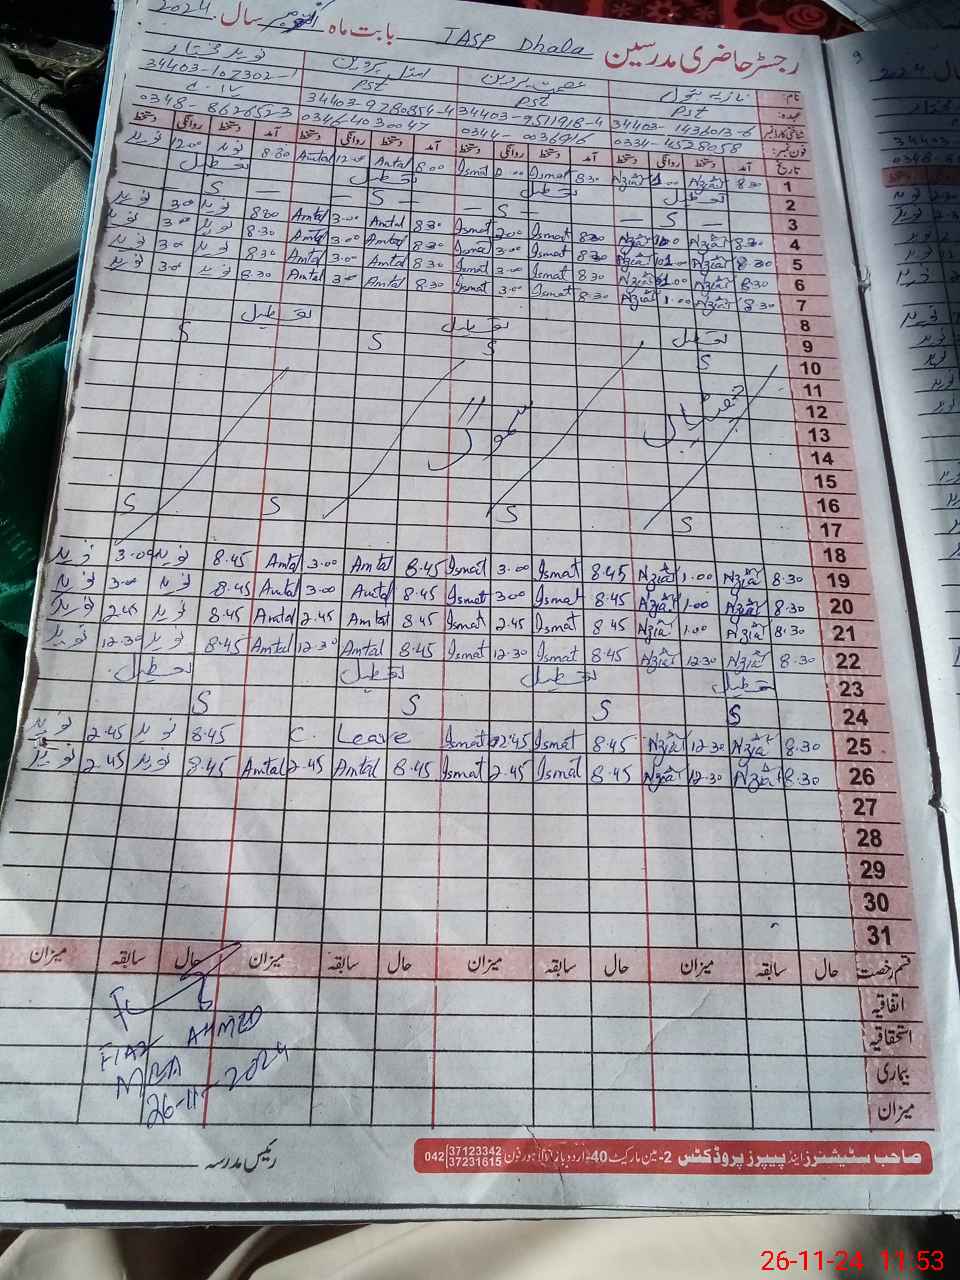 رجسٹر حاضری مدرسین IASP Dhala بابت ماہ سال 2024
نام:
عہدہ: PST PST PST
شناختی کارڈ نمبر 34403-1436013-6 34403-9511918-4 34403-9280854-4 34403-107302-1
فون نمبر: 0334-4528058 0344-0036916 0346-4030047 0348-8626523
تاریخ آمد دستخط روانگی دستخط آمد دستخط روانگی دستخط آمد دستخط روانگی دستخط آمد دستخط روانگی دستخط
1 8.30 Ismat 8.30 Ismat Amtal 8.00 Amtal 12.00 8.30 نوید 12.00 نوید
2 تعطیل تعطیل تعطیل تعطیل
3 S S S S
4 8.30 8.30 Ismat Ismat 8.30 Amtal 3.00 Amtal 8.30 نوید 3.00 نوید
5 8.30 8.30 Ismat 3.00 Ismat 8.30 Amtal 3.00 Amtal 8.30 نوید 3.00 نوید
6 8.30 8.30 Ismat 3.00 Ismat 8.30 Amtal 3.00 Amtal 8.30 نوید 3.00 نوید
7 8.30 1.00 8.30 Ismat 3.00 Ismat 8.30 Amtal 3.00 Amtal 8.30 نوید 3.00 نوید
8
9 تعطیل تعطیل تعطیل
10 S S S S
11
12
13 سموگ چھٹیاں
14
15
16
17 S S S S
18
19 8.30 1.00 8.45 Ismat 3.00 Ismat 8.45 Amtal 3.00 Amtal 8.45 نوید 3.00 نوید
20 8.30 1.00 8.45 Ismat 3.00 Ismat 8.45 Amtal 3.00 Amtal 8.45 نوید 3.00 نوید
21 8.30 1.00 8.45 Ismat 2.45 Ismat 8.45 Amtal 2.45 Amtal 8.45 نوید 2.45 نوید
22 8.30 12.30 8.45 Ismat 12.30 Ismat 8.45 Amtal 12.30 Amtal 8.45 نوید 12.30 نوید
23 تعطیل تعطیل تعطیل تعطیل
24 S S S S
25 8.30 12.30 8.45 Ismat 2.45 Ismat C. Leave 8.45 نوید 2.45 نوید
26 8.30 12.30 8.45 Ismat 2.45 Ismat 8.45 Amtal 2.45 Amtal 8.45 نوید 2.45 نوید
27
28
29
30
31
قسم رخصت حال سابقہ میزان حال سابقہ میزان حال سابقہ میزان حال سابقہ میزان
اتفاقیہ
استحقاقیہ
بیماری
میزان
FIAZ AHMED
MEA
26-11-2024
رئیس مدرسہ
صاحب سٹیشنرز اینڈ پیپرز پروڈکٹس 2- مین مارکیٹ 40- اردو بازار لاہور فون 042 37123342 37231615
9
2024 سال
26-11-24 11.53